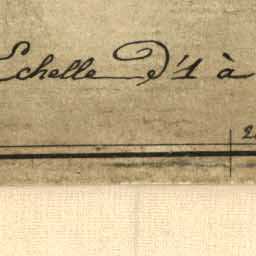 Echelle d'1 à